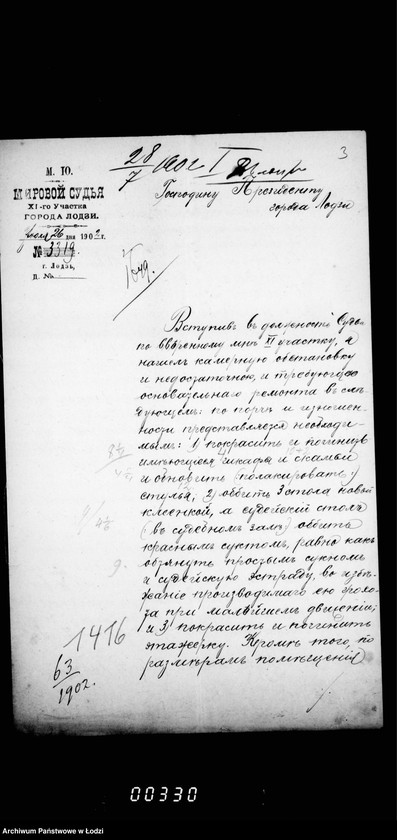 3
28/7 1902 I
М. Ю.
МИРОВОЙ СУДЬЯ
XI-го Участка
ГОРОДА ЛОДЗИ.
26 дня 1902 г.
№ 3319.
г. Лодзь,
Д. №
Господину Президенту
города Лодзи
Вступивъ въ должность Судьи
по ввѣренному мнѣ XI участку, я
нашелъ камерную обстановку
и недостаточною, и требующею
основательнаго ремонта въ слѣ-
дующемъ: по порчѣ и изношен-
ности представляется необходи-
мымъ: 1) покрасить и починить
имѣющіеся 4 шкафа и скамьи
и обновить (полакировать)
стулья; 2) обить 3 стола новой
клеенкой, а судейскій столъ
(въ судебномъ залѣ) обить
краснымъ сукномъ, равно какъ
обтянуть простымъ сукномъ
и судейскую эстраду, во избѣ-
жаніе производимаго ею грохо-
та при малѣйшемъ движеніи;
и 3) покрасить и починить
этажерку. Кромѣ того, по
размѣрамъ помѣщенія
9.
1416
63/1902.
Archiwum Państwowe w Łodzi
00330